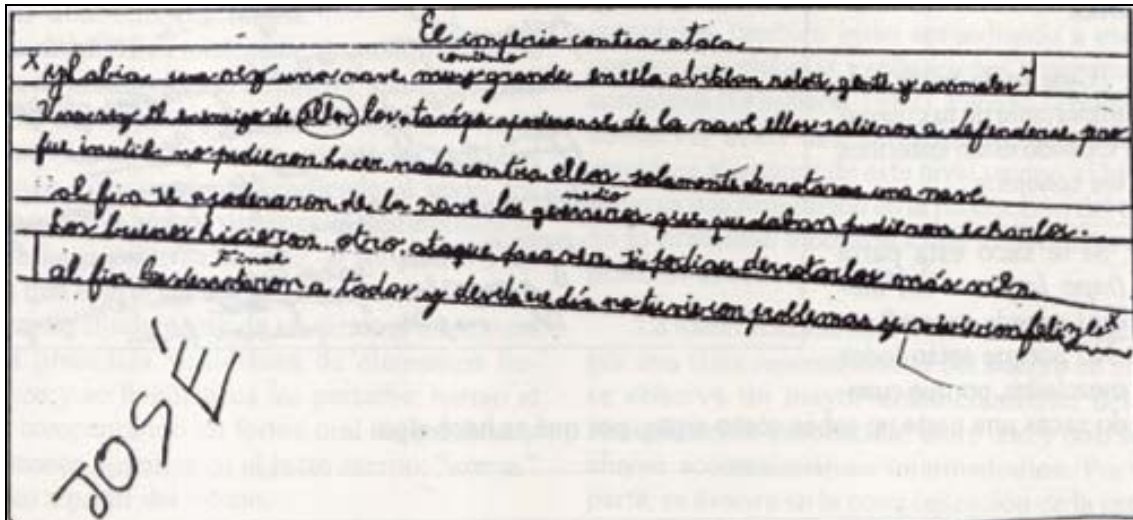 El imperio contra ataca
comienzo
x y habia una vez una nave muy grande en ella abitaban robots, gente y animales
Una vez el enemigo de ellos los atacó y apoderarse de la nave ellos salieron a defenderse pero
fue inutil no pudieron hacer nada contra ellos solamente derrotaron una nave
medio
al fin se apoderaron de la nave los guerreros que quedaban pudieron echarlos.
Los buenos hicieron otro ataque para ver si podian derrotarlos más
al fin los derrotaron a todos y desde ese día no tuvieron problemas y vivieron felizes x
JOSÉ